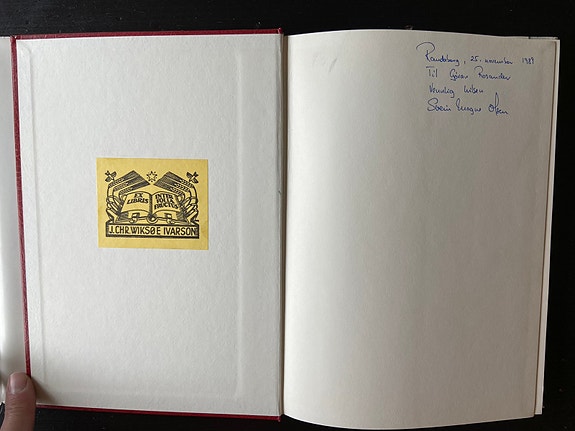 EX LIBRIS
INTER FOLIA FRUCTUS
J. CHR. WIKSØE IVARSON
Randaberg, 25. november 1989
Til Göran Rosander
Vennlig hilsen
Svein Magne Olsen